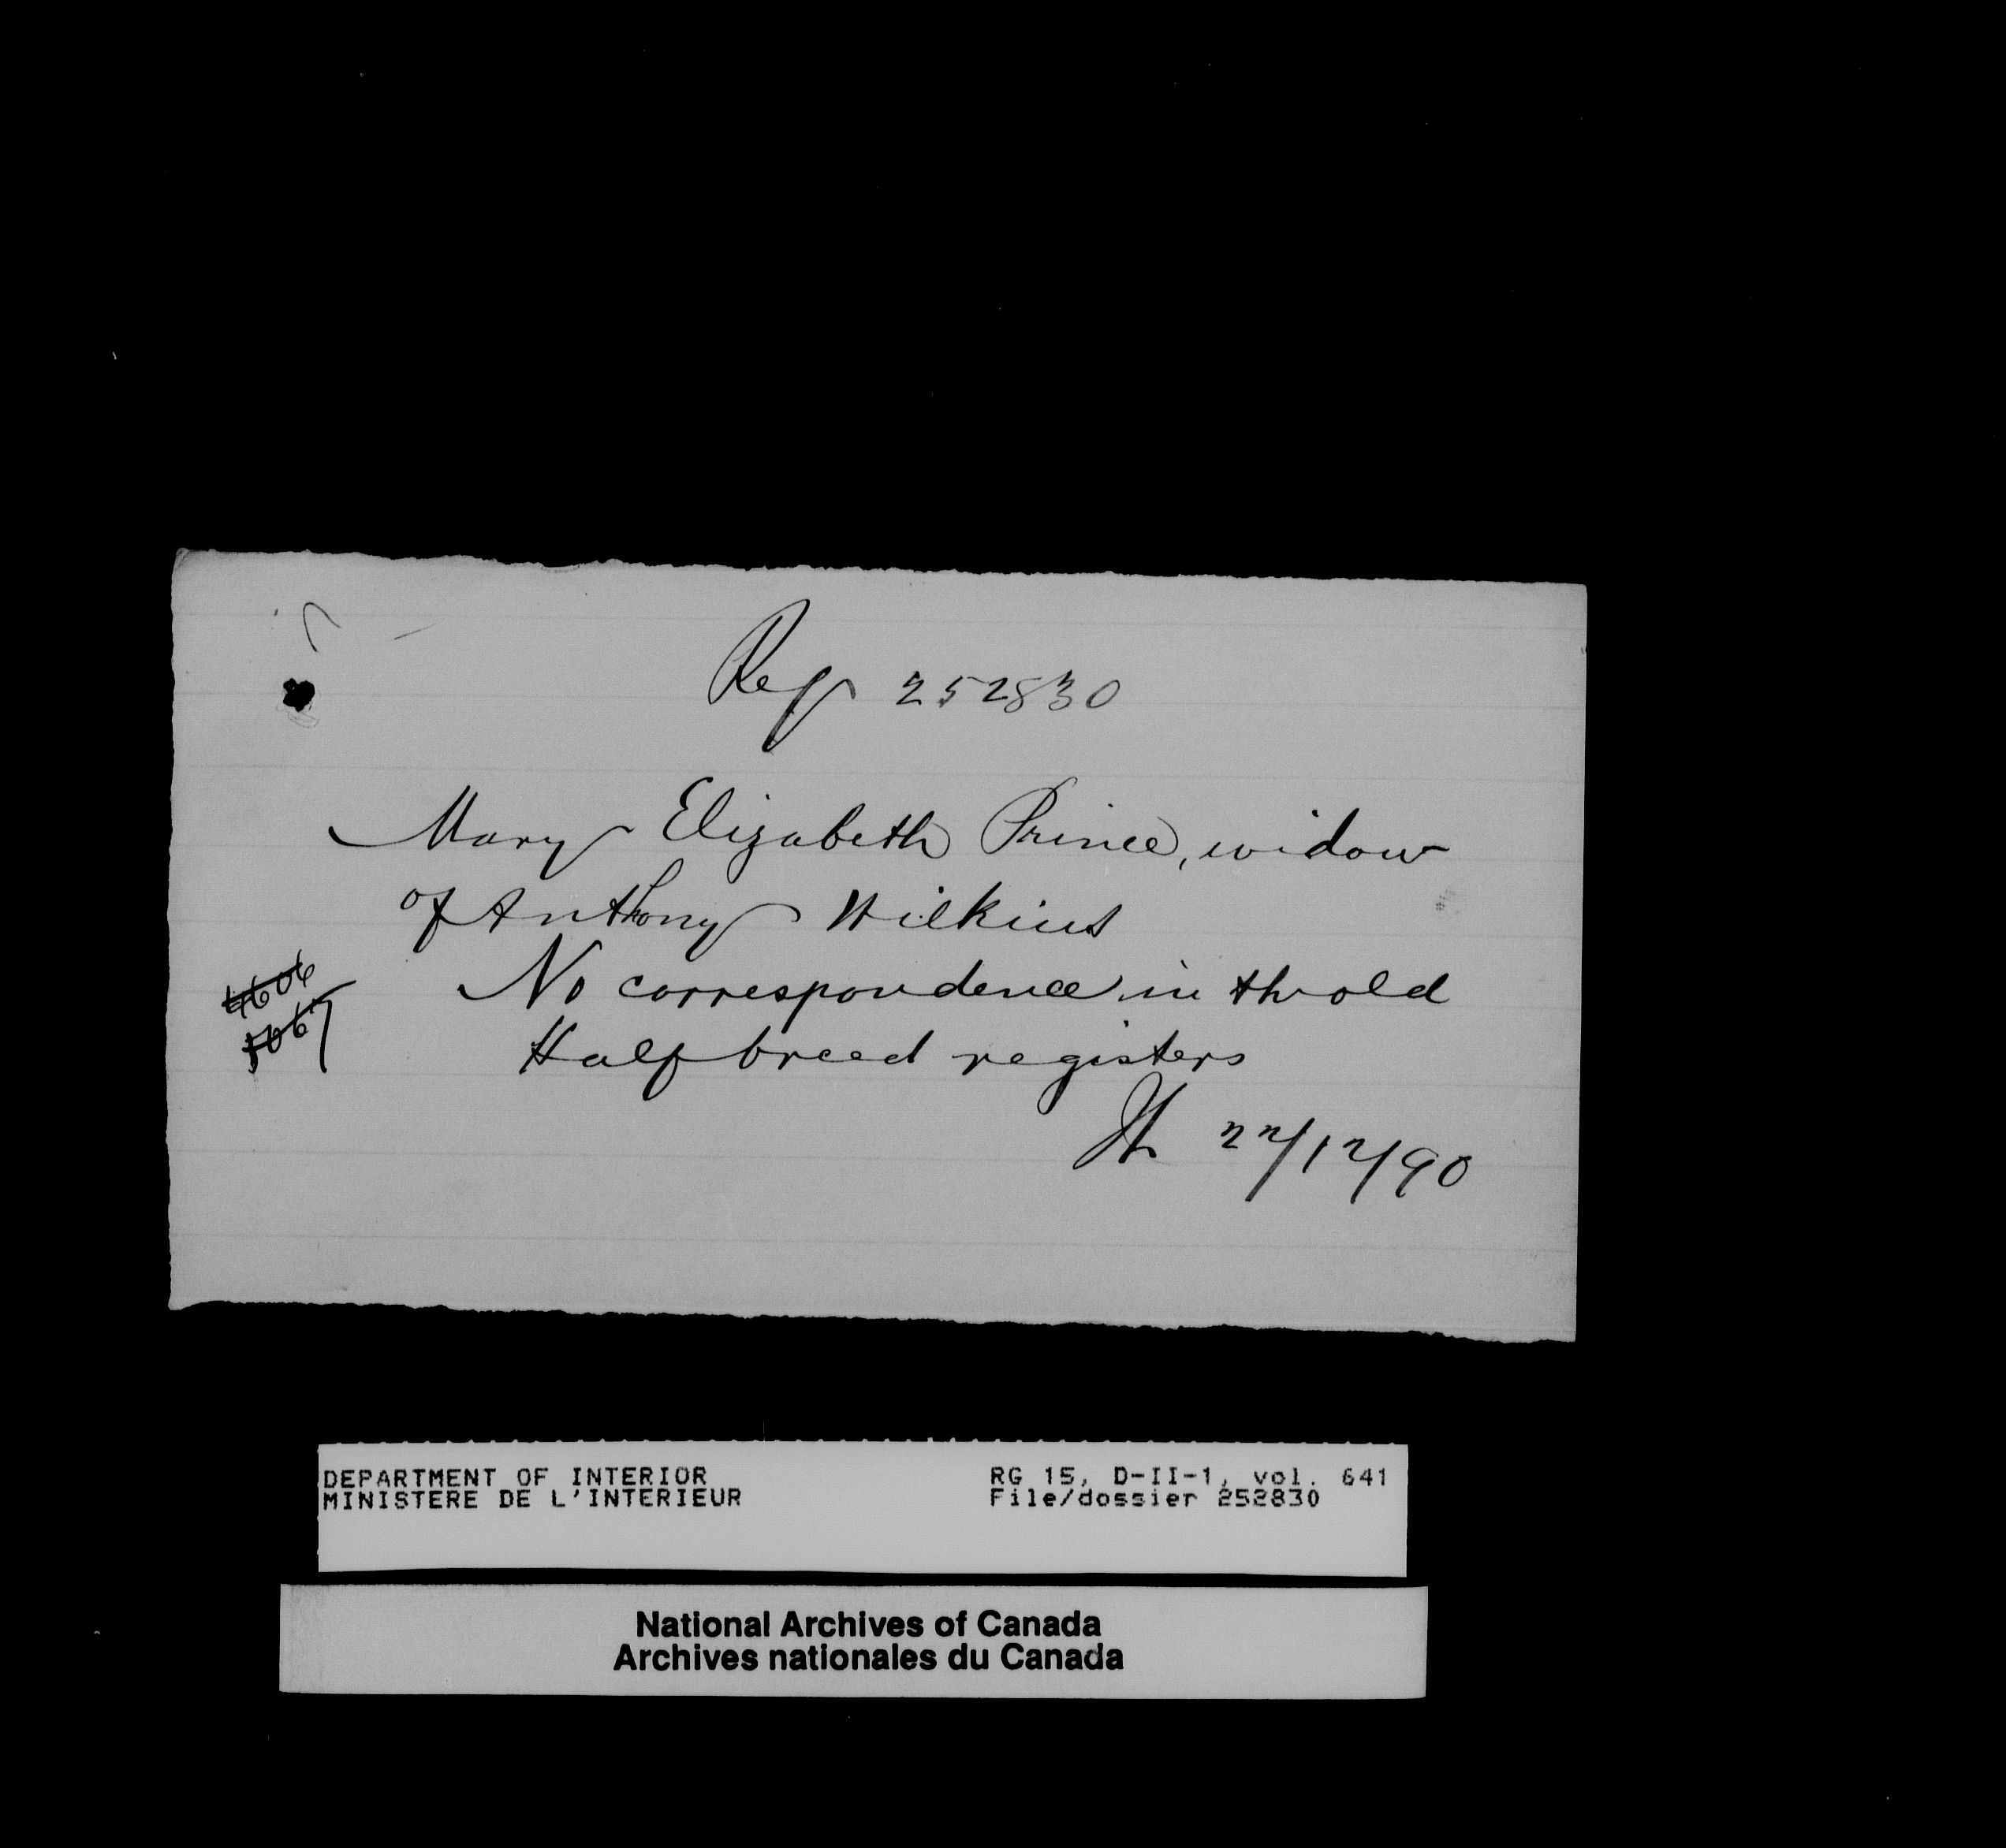 Ref 252830
Mary Elizabeth Prince, widow
of Anthony Wilkins
No correspondence in the old
Halfbreed registers
22/12/90
4606
DEPARTMENT OF INTERIOR
MINISTERE DE L'INTERIEUR
RG 15, D-II-1, vol. 641
File/dossier 252830
National Archives of Canada
Archives nationales du Canada